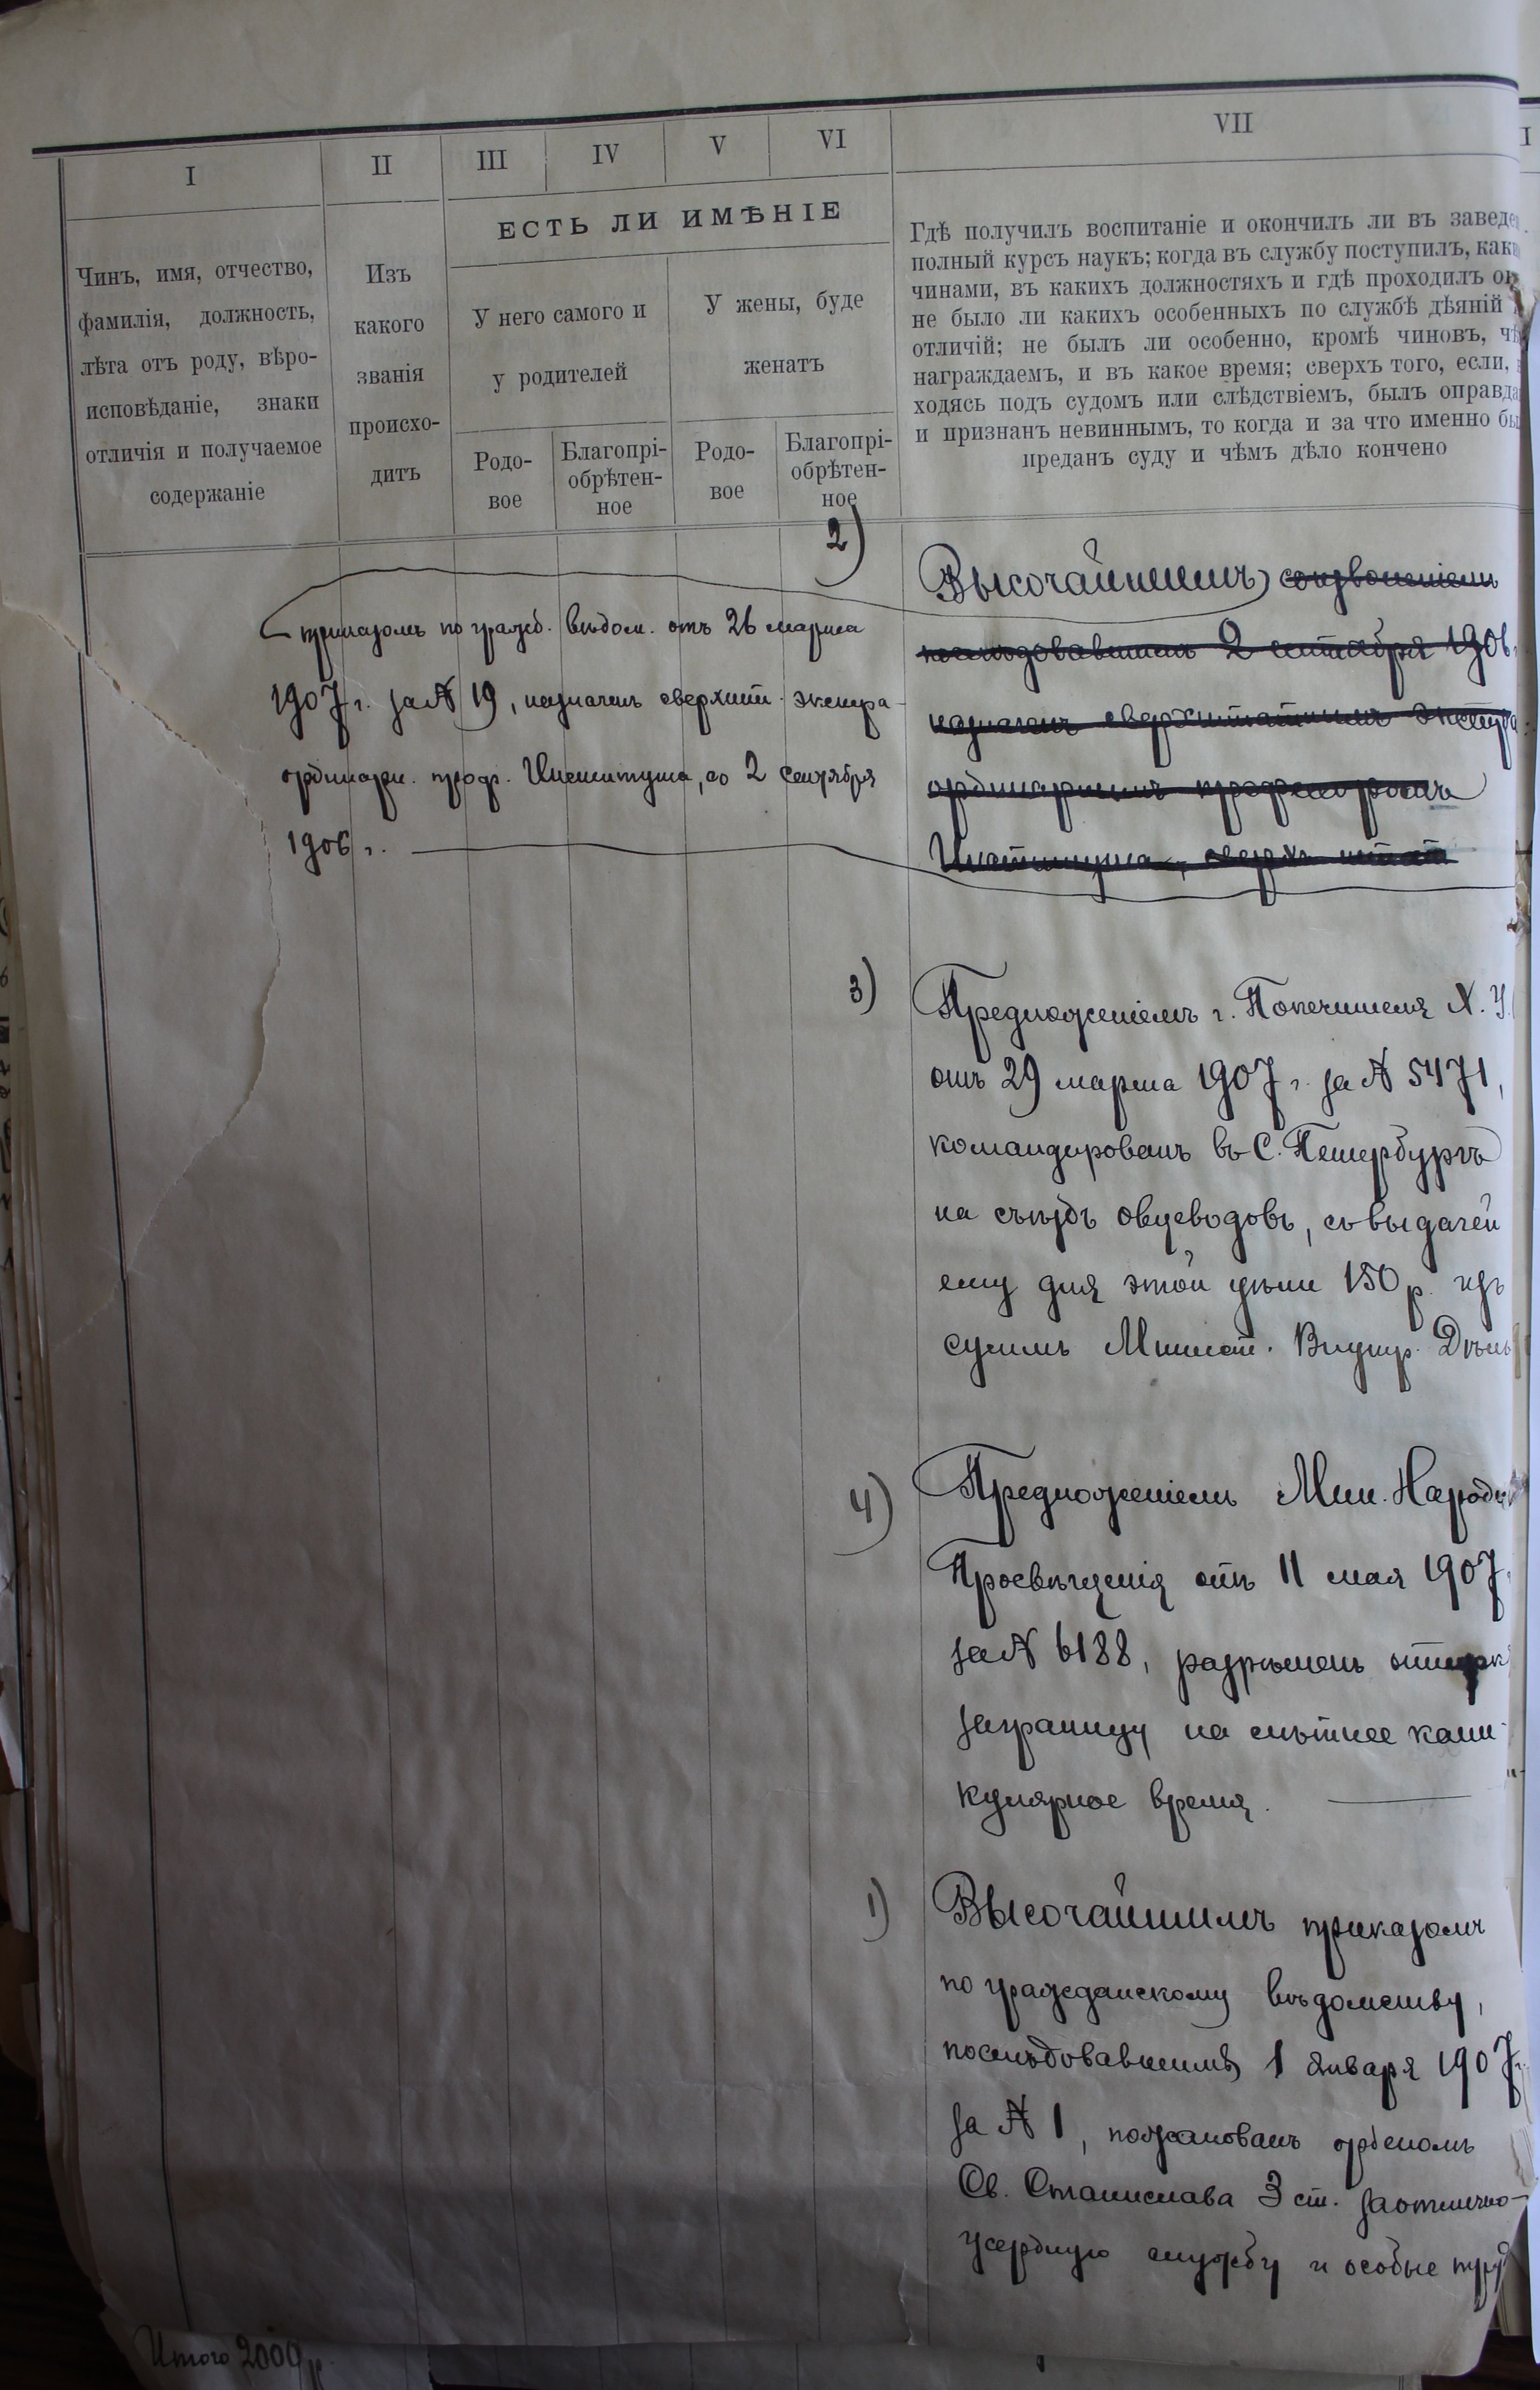 I
II
III
IV
V
VI
VII
ЕСТЬ ЛИ ИМѢНІЕ
Чинъ, имя, отчество,
фамилія, должность,
лѣта отъ роду, вѣро-
исповѣданіе, знаки
отличія и получаемое
содержаніе
Изъ
какого
званія
происхо-
дитъ
У него самого и
у родителей
У жены, буде
женатъ
Родо-
вое
Благопрі-
обрѣтен-
ное
Родо-
вое
Благопрі-
обрѣтен-
ное
Гдѣ получилъ воспитаніе и окончилъ ли въ заведе
полный курсъ наукъ; когда въ службу поступилъ, как
чинами, въ какихъ должностяхъ и гдѣ проходилъ
не было ли какихъ особенныхъ по службѣ дѣяній
отличій; не былъ ли особенно, кромѣ чиновъ, чѣ
награждаемъ, и въ какое время; сверхъ того, если,
ходясь подъ судомъ или слѣдствіемъ, былъ оправда
и признанъ невиннымъ, то когда и за что именно бы
преданъ суду и чѣмъ дѣло кончено
2) Высочайшимъ соизволеніемъ
послѣдовавшимъ 2 сентября 1906
назначенъ сверхштатнымъ экстра
ординарнымъ профессоромъ
Института, сверхъ штата
приказомъ по гражд. вѣдом. отъ 26 марта
1907 г. за № 19, назначенъ сверхштат. экстра-
ординарн. проф. Института, со 2 сентября
1906 г.
3) Предложеніемъ г. Попечителя Х. У.
отъ 29 марта 1907 г. за № 5471,
командированъ въ С. Петербургъ
на съѣздъ овцеводовъ, съ выдачей
ему для этой цѣли 150 р. изъ
суммъ Минист. Внутр. Дѣлъ
4) Предложеніемъ Мин. Народн
Просвѣщенія отъ 11 мая 1907
за № 6188, разрѣшенъ отпуск
заграницу на лѣтнее кани-
кулярное время.
1) Высочайшимъ приказомъ
по гражданскому вѣдомству,
послѣдовавшимъ 1 января 1907 г.
за № 1, пожалованъ орденомъ
Св. Станислава 3 ст. за отлично-
усердную службу и особые труд
Итого 2000 р.